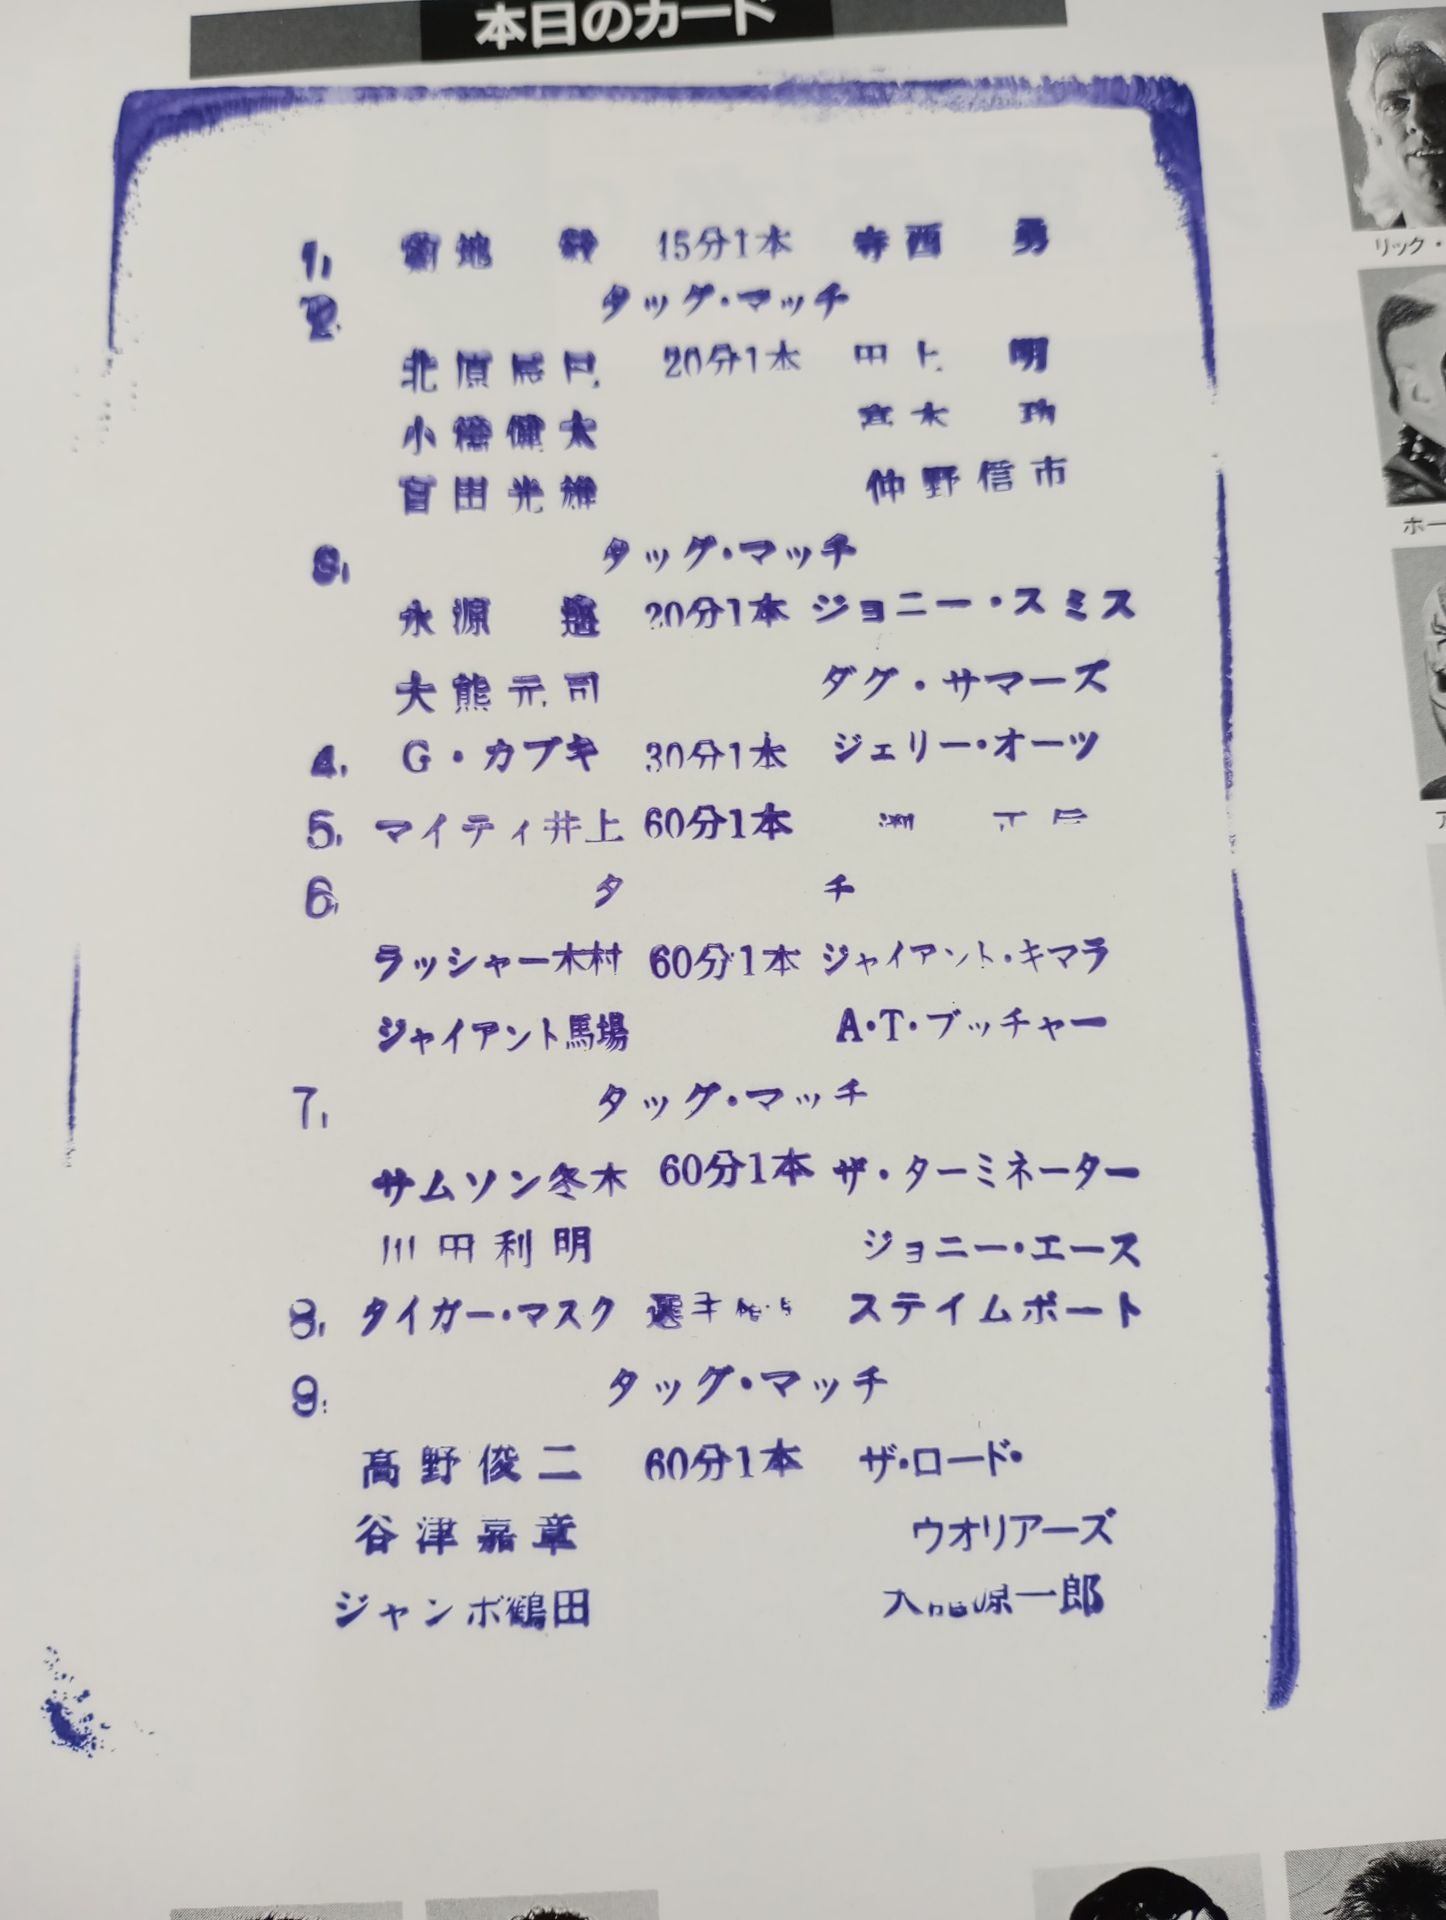 本日のカード
リック・
ホー
1. 菊地 毅 15分1本 寺西 勇
2. タッグ・マッチ
北原辰巳 20分1本 田上 明
小橋健太 高木 功
百田光雄 仲野信市
3. タッグ・マッチ
永源 遙 20分1本 ジョニー・スミス
大熊元司 ダグ・サマーズ
4. G・カブキ 30分1本 ジェリー・オーツ
5. マイティ井上 60分1本 渕 正信
6. タ チ
ラッシャー木村 60分1本 ジャイアント・キマラ
ジャイアント馬場 A・T・ブッチャー
7. タッグ・マッチ
サムソン冬木 60分1本 ザ・ターミネーター
川田利明 ジョニー・エース
8. タイガー・マスク 選手 ステイムボート
9. タッグ・マッチ
高野俊二 60分1本 ザ・ロード・
谷津嘉章 ウオリアーズ
ジャンボ鶴田 天龍源一郎